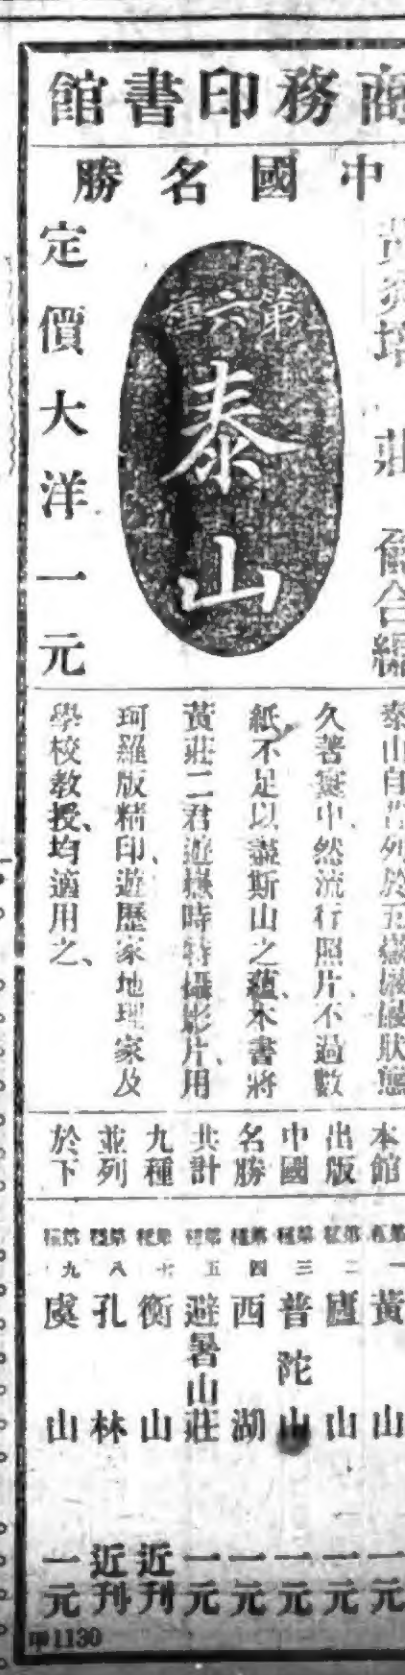 商務印書館
中國名勝
第六種
泰山
黃炎培 莊俞合編
定價大洋一元
泰山自昔列於五嶽巖巖狀態
久著寰中、然流行照片、不過數
紙不足以盡斯山之蘊、本書將
黃莊二君遊嶽時特攝影片、用
珂羅版精印、遊歷家地理家及
學校教授、均適用之、
本館
出版
中國
名勝
共計
九種
並列
於下
第一種 黃山 一元
第二種 廬山 一元
第三種 普陀山 一元
第四種 西湖 一元
第五種 避暑山莊 一元
第七種 衡山 近刊
第八種 孔林 近刊
第九種 虞山 一元
甲1130